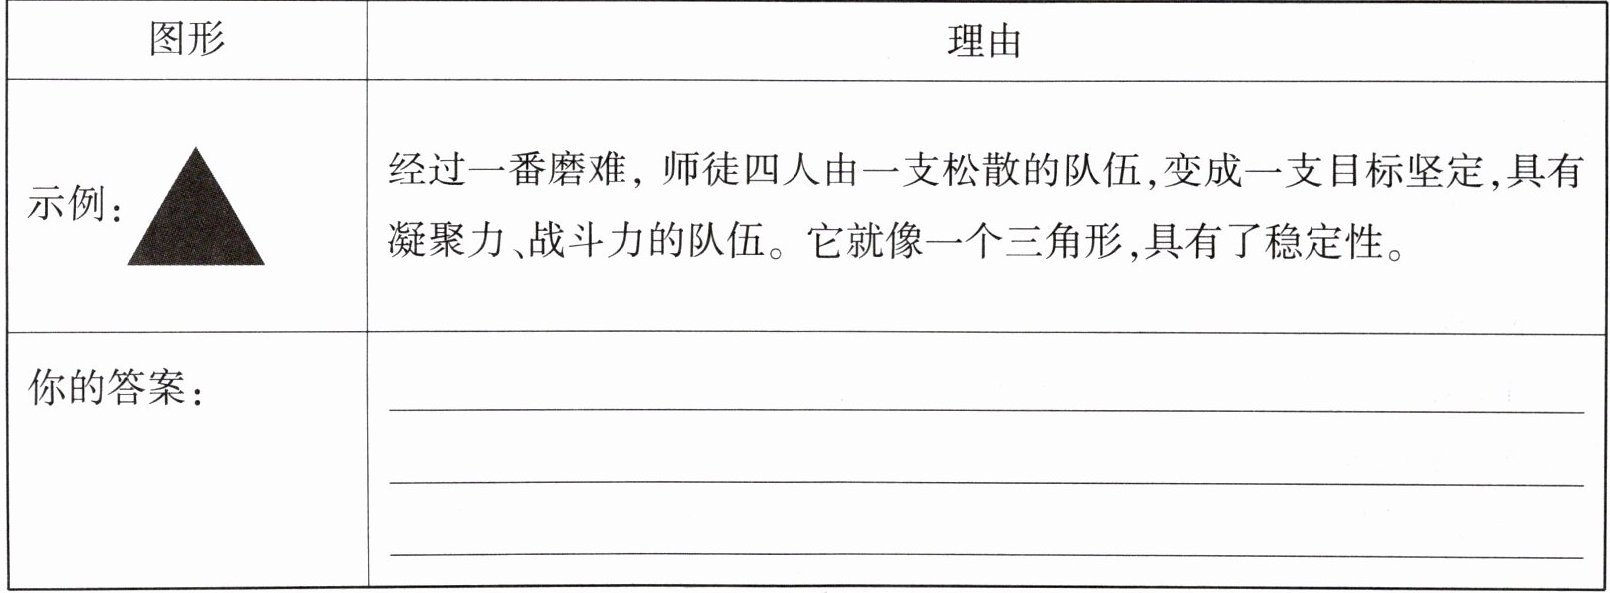 图形
理由
示例:
经过一番磨难,师徒四人由一支松散的队伍,变成一支目标坚定,具有
凝聚力、战斗力的队伍。它就像一个三角形,具有了稳定性。
你的答案: